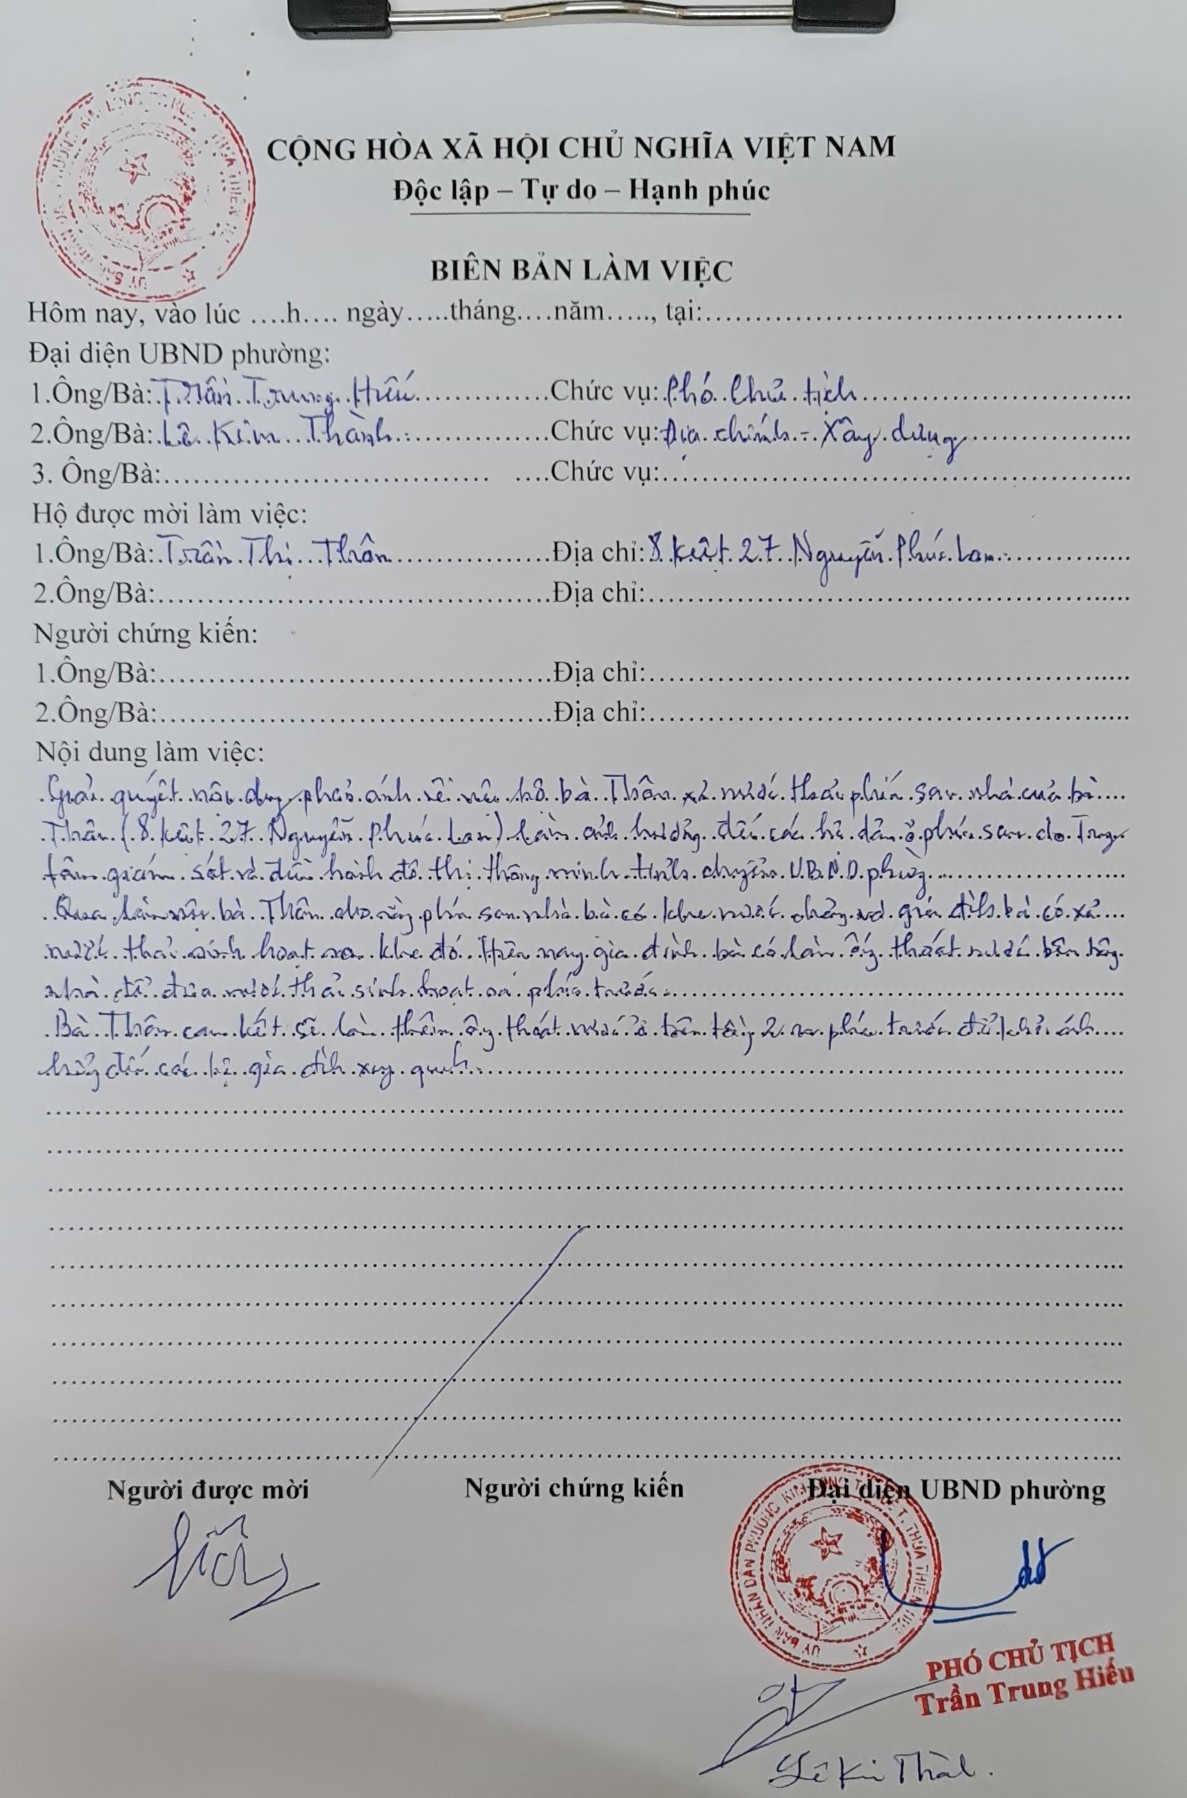 CỘNG HÒA XÃ HỘI CHỦ NGHĨA VIỆT NAM
Độc lập – Tự do – Hạnh phúc
BIÊN BẢN LÀM VIỆC
Hôm nay, vào lúc ….h…. ngày…..tháng….năm….., tại:……………………………………
Đại diện UBND phường:
1.Ông/Bà: Trần Trung Hiếu Chức vụ: Phó Chủ tịch
2.Ông/Bà: Lê Kim Thành Chức vụ: Địa chính - Xây dựng
3. Ông/Bà:…………………………… ….Chức vụ:……………………………………
Hộ được mời làm việc:
1.Ông/Bà: Trần Thị Thân Địa chỉ: 8 kiệt 27 Nguyễn Phúc Lan
2.Ông/Bà:……………………………….Địa chỉ:……………………………………
Người chứng kiến:
1.Ông/Bà:……………………………….Địa chỉ:……………………………………
2.Ông/Bà:……………………………….Địa chỉ:……………………………………
Nội dung làm việc:
Giải quyết nội dung phản ánh về việc hộ bà Thân xả nước thải phía sau nhà của bà
Thân (8 kiệt 27 Nguyễn Phúc Lan) làm ảnh hưởng đến các hộ dân ở phía sau do Trung
tâm giám sát và điều hành đô thị thông minh tỉnh chuyển UBND phường.
Qua làm việc bà Thân cho rằng phía sau nhà bà có khe nước gia đình bà có xả
nước thải sinh hoạt ra khe đó. Hiện nay gia đình bà có làm ống thoát nước bên hông
nhà để đưa nước thải sinh hoạt ra phía trước.
Bà Thân cam kết sẽ làm thêm ống thoát nước ở trên tầng 2 ra phía trước để khỏi ảnh
hưởng đến các hộ gia đình xung quanh.
Người được mời Người chứng kiến Đại diện UBND phường
ỦY BAN NHÂN DÂN PHƯỜNG KIM LONG T. THỪA THIÊN HUẾ
PHÓ CHỦ TỊCH
Trần Trung Hiếu
Lê Kim Thành